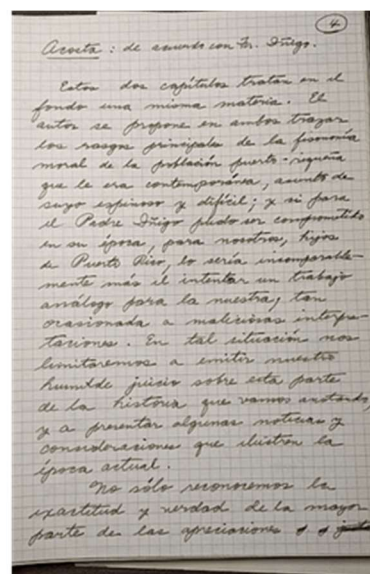 4
Acosta: de acuerdo con Fr. Iñigo.
Estos dos capítulos tratan en el
fondo una misma materia. El
autor se propone en ambos trazar
los rasgos principales de la fisonomía
moral de la población puerto-riqueña
que le era contemporánea, asunto de
suyo espinoso y difícil; y si para
el Padre Iñigo pudo ser comprometido
en su época, para nosotros, hijos
de Puerto Rico, lo sería insomparable-
mente más el intentar un trabajo
análogo para la nuestra, tan
ocasionada a maliciosas interpre-
taciones. En tal situación nos
limitaremos a emitir nuestro
humilde juicio sobre esta parte
de la historia que vamos anotando,
y a presentar algunas noticias y
consideraciones que ilustren la
época actual.
No sólo reconocemos la
exactitud y verdad de la mayor
parte de las apreciaciones